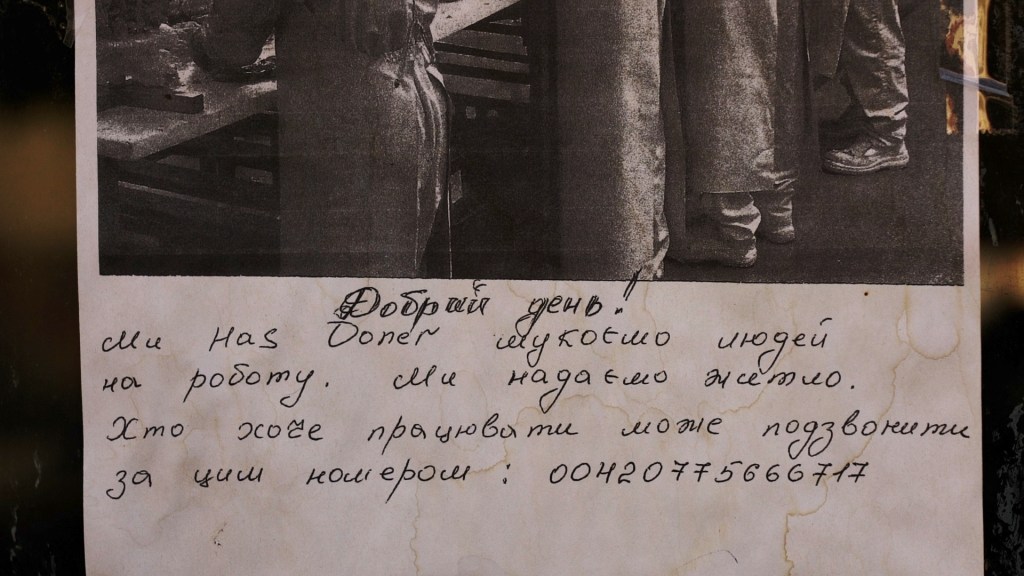 Добрий день!
Ми Has Doner шукоємо людей
на роботу. Ми надаємо житло.
Хто хоче працювати може подзвонити
за цим номером : 00420775666717